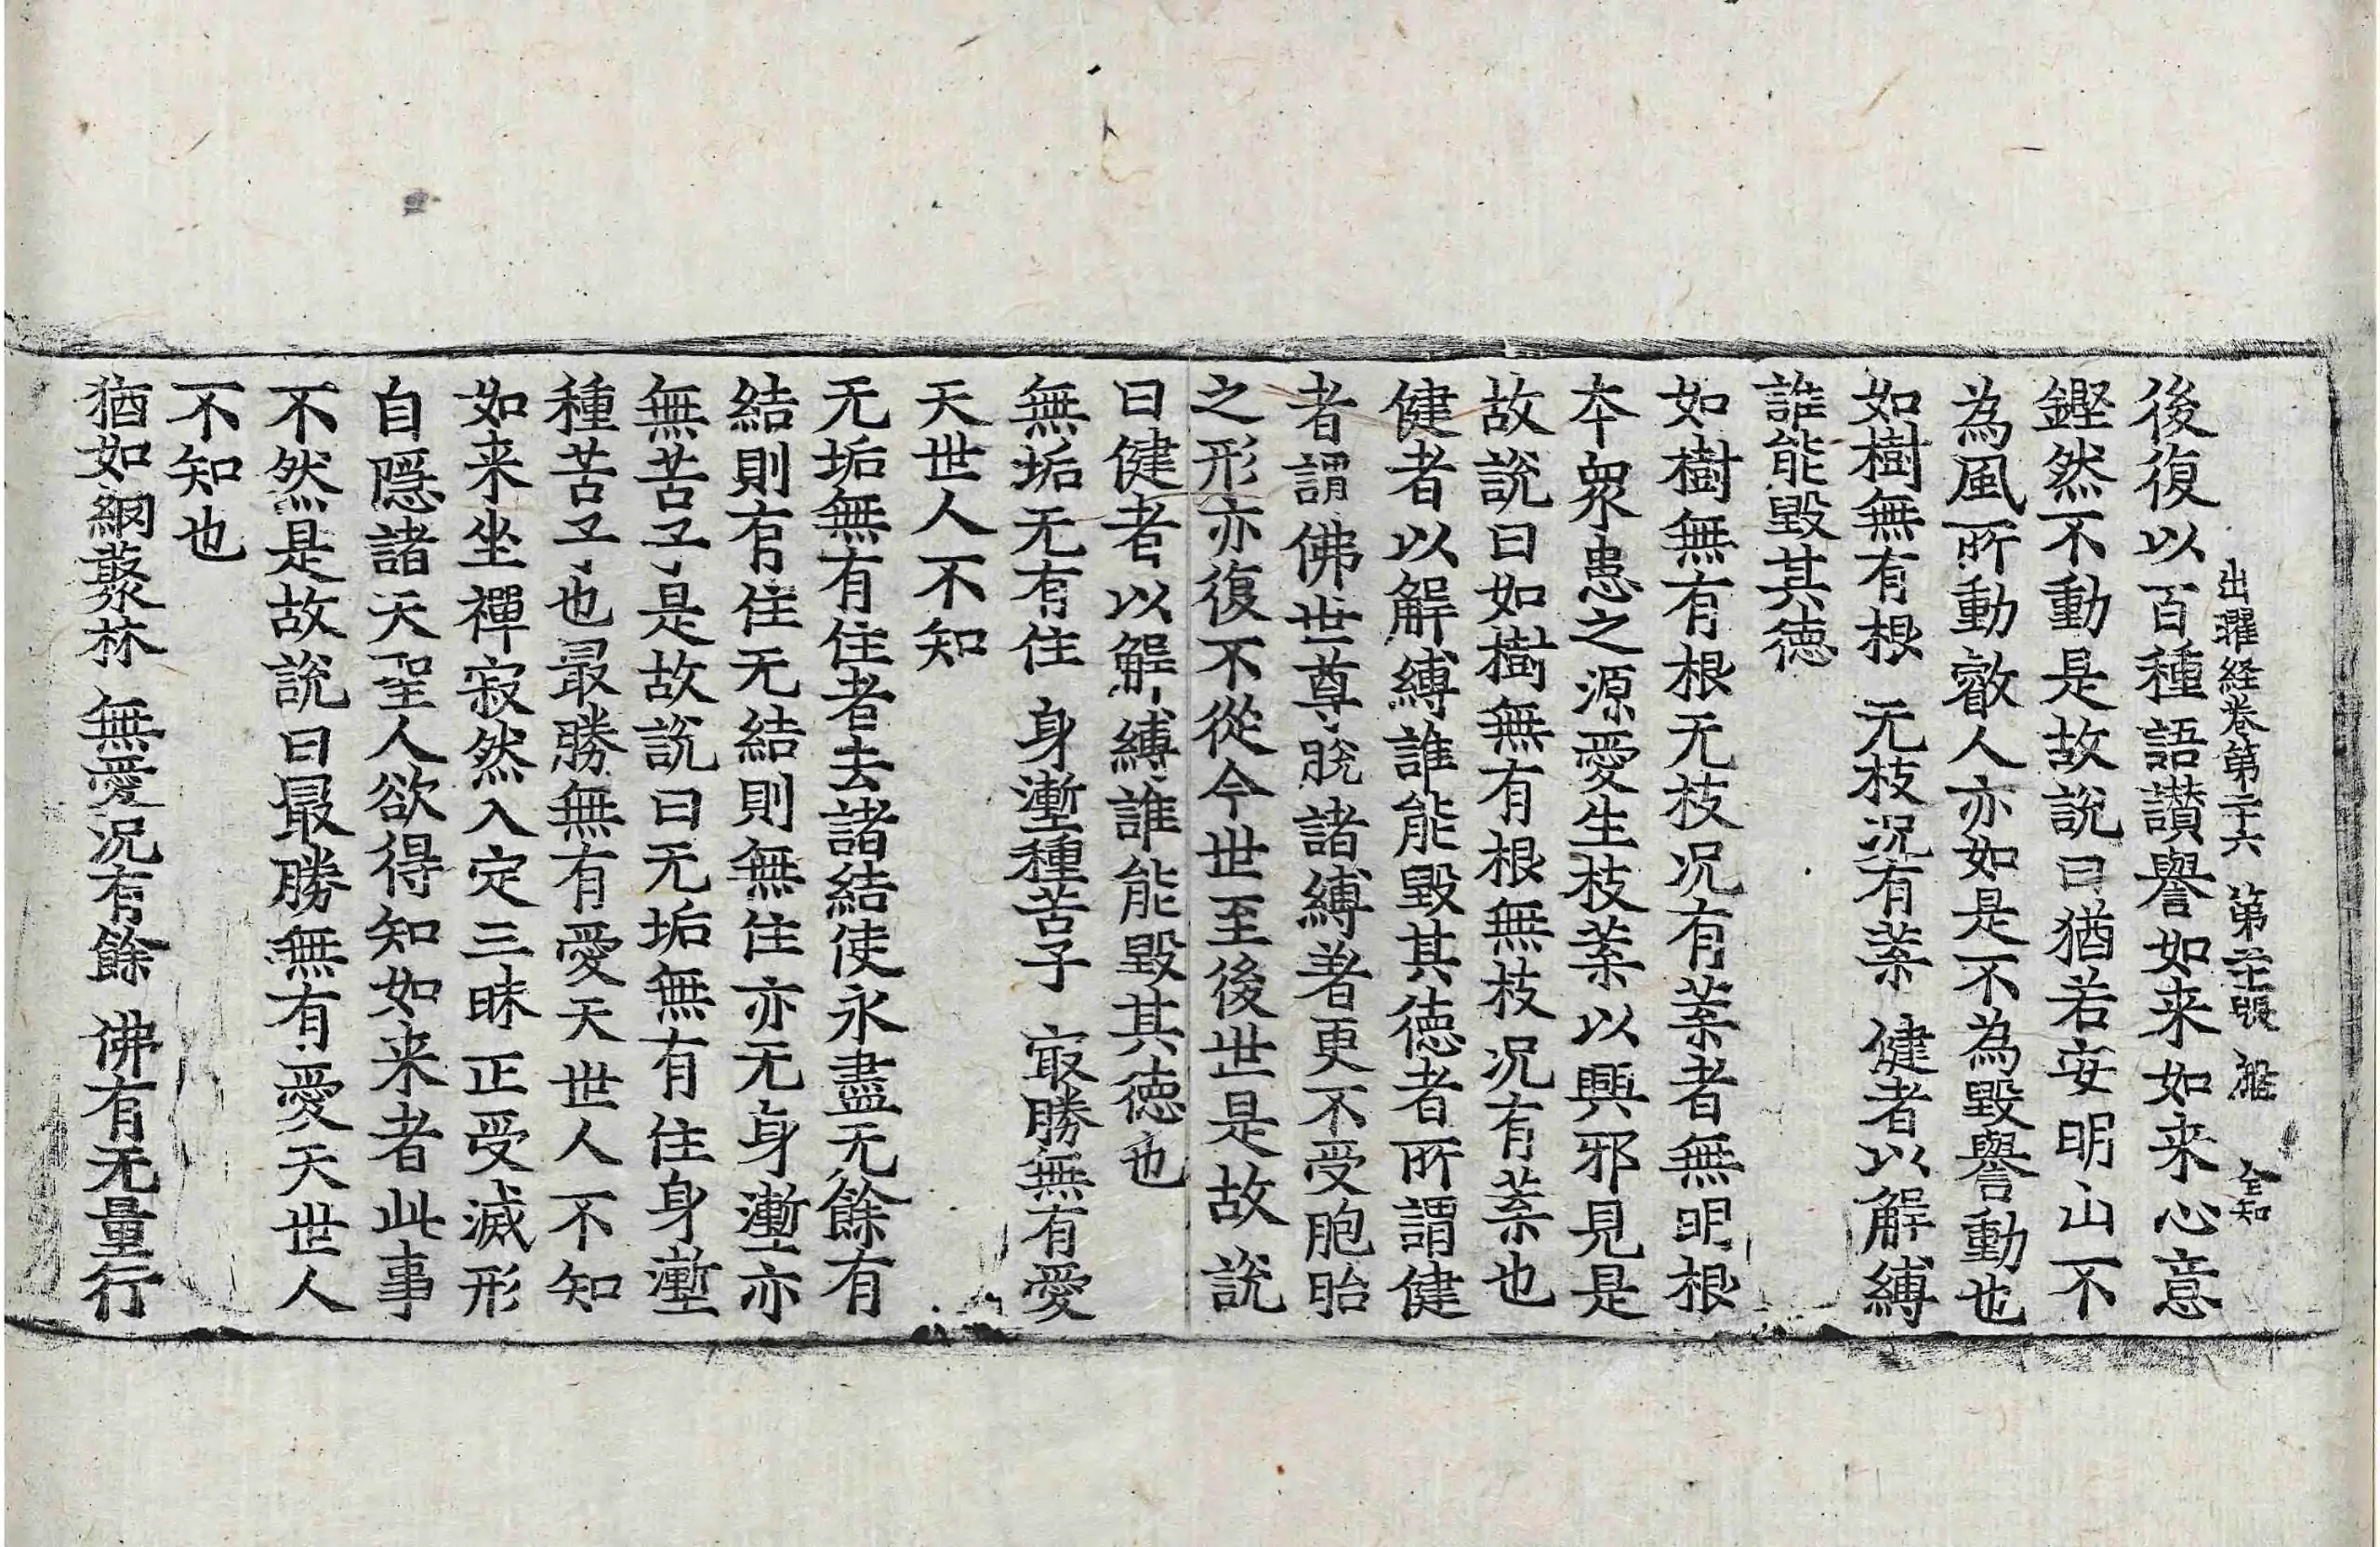 出曜経巻第二十六 第二十張 雅 全知
後復以百種語讃譽如来如来心意
鏗然不動是故說曰猶若安明山不
為風所動叡人亦如是不為毀譽動也
如樹無有根 无枝况有葉 健者以解縛
誰能毀其德
如樹無有根无枝况有葉者無明根
本衆患之源愛生枝葉以興邪見是
故說曰如樹無有根無枝况有葉也
健者以解縛誰能毀其德者所謂健
者謂佛世尊脫諸縛著更不受胞胎
之形亦復不從今世至後世是故說
曰健者以解縛誰能毀其德也
無垢无有住 身壍種苦子 㝡勝無有愛
天世人不知
无垢無有住者去諸結使永盡无餘有
結則有住无結則無住亦无身壍亦
無苦子是故說曰无垢無有住身壍
種苦子也最勝無有愛天世人不知
如来坐禪寂然入定三昧正受滅形
自隱諸天聖人欲得知如来者此事
不然是故說曰最勝無有愛天世人
不知也
猶如網叢林 無愛况有餘 佛有无量行